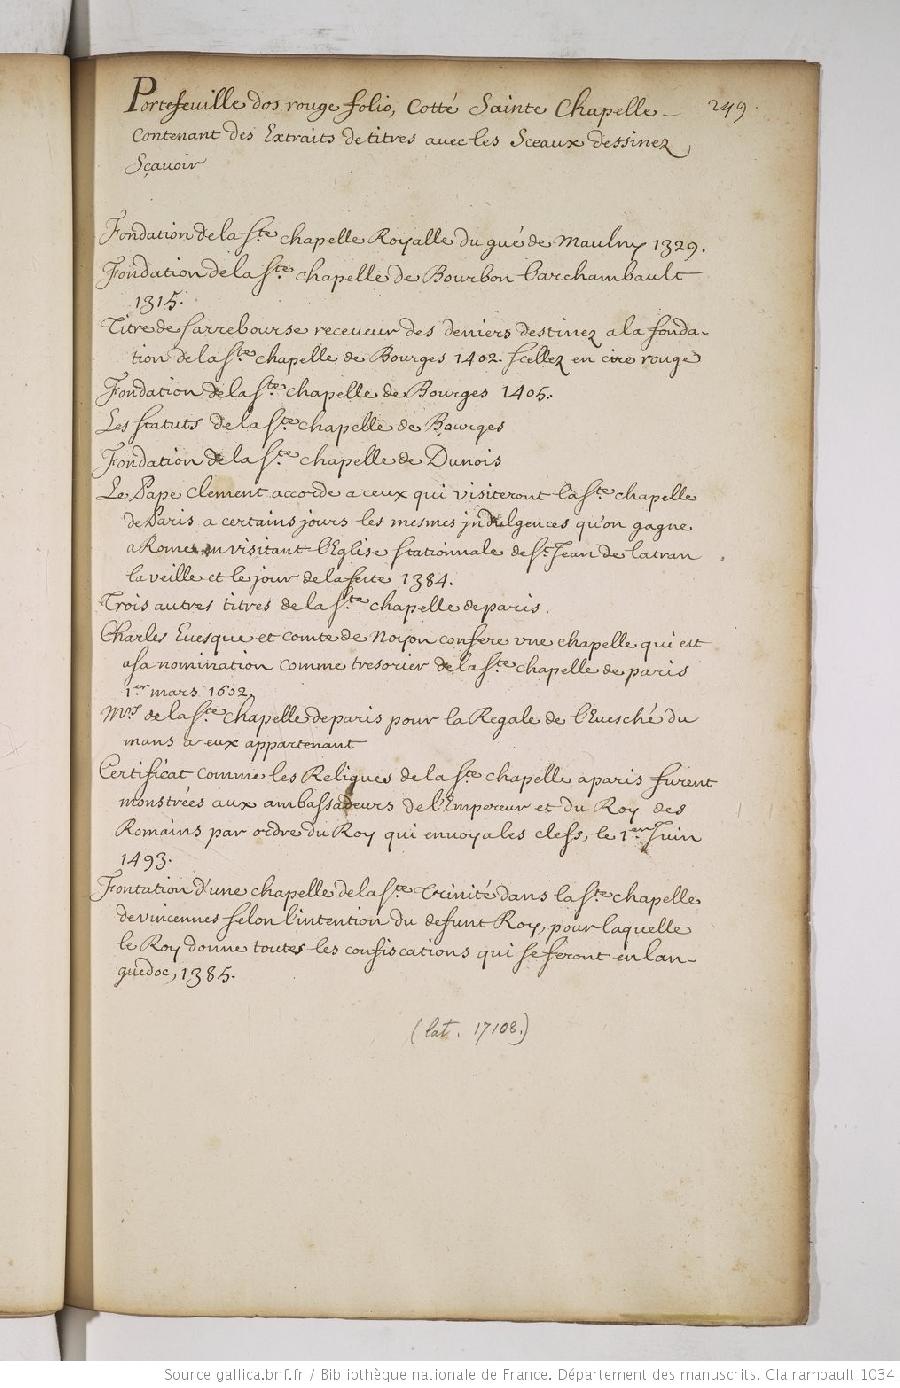 Portefeuille dos rouge folio, Cotté Sainte Chapelle 249.
Contenant des Extraits de titres avec les Sceaux dessinez,
Sçavoir
Fondation de la Ste chapelle Royalle du gué de Maulny 1329.
Fondation de la Ste chapelle de Bourbon Larchambault
1315.
Titre de Sarrebourse receveur des deniers destinez a la fonda-
tion de la Ste chapelle de Bourges 1402. scellez en cire rouge
Fondation de la Ste chapelle de Bourges 1405.
Les statuts de la Ste chapelle de Bourges
Fondation de la Ste chapelle de Dunois
Le Pape Clement accorde a ceux qui visiteront la Ste chapelle
de Paris a certains jours les mesmes indulgences qu'on gagne
a Rome en visitant l'Eglise stationnale de St Jean de latran
la veille et le jour de la feste 1384.
Trois autres titres de la Ste chapelle de paris.
Charles Evesque et comte de Noyon confere une chapelle qui est
a sa nomination comme tresorier de la Ste chapelle de paris
1er mars 1602,
Mrs de la Ste Chapelle de paris pour la Regale de l'Evesché du
mans a eux appartenant
Certificat comme les Reliques de la Ste chapelle a paris furent
monstrées aux ambassadeurs de l'Empereur et du Roy des
Romains par ordre du Roy qui envoya les clefs, le 1er Juin
1493.
Fontation d'une chapelle de la Ste Trinité dans la Ste chapelle
de vincennes selon l'intention du defunt Roy, pour laquelle
le Roy donne toutes les confiscations qui se feront en lan-
guedoc, 1385.
(lat. 17108.)
Source gallica.bnf.fr / Bibliothèque nationale de France. Département des manuscrits. Clairambault 1034